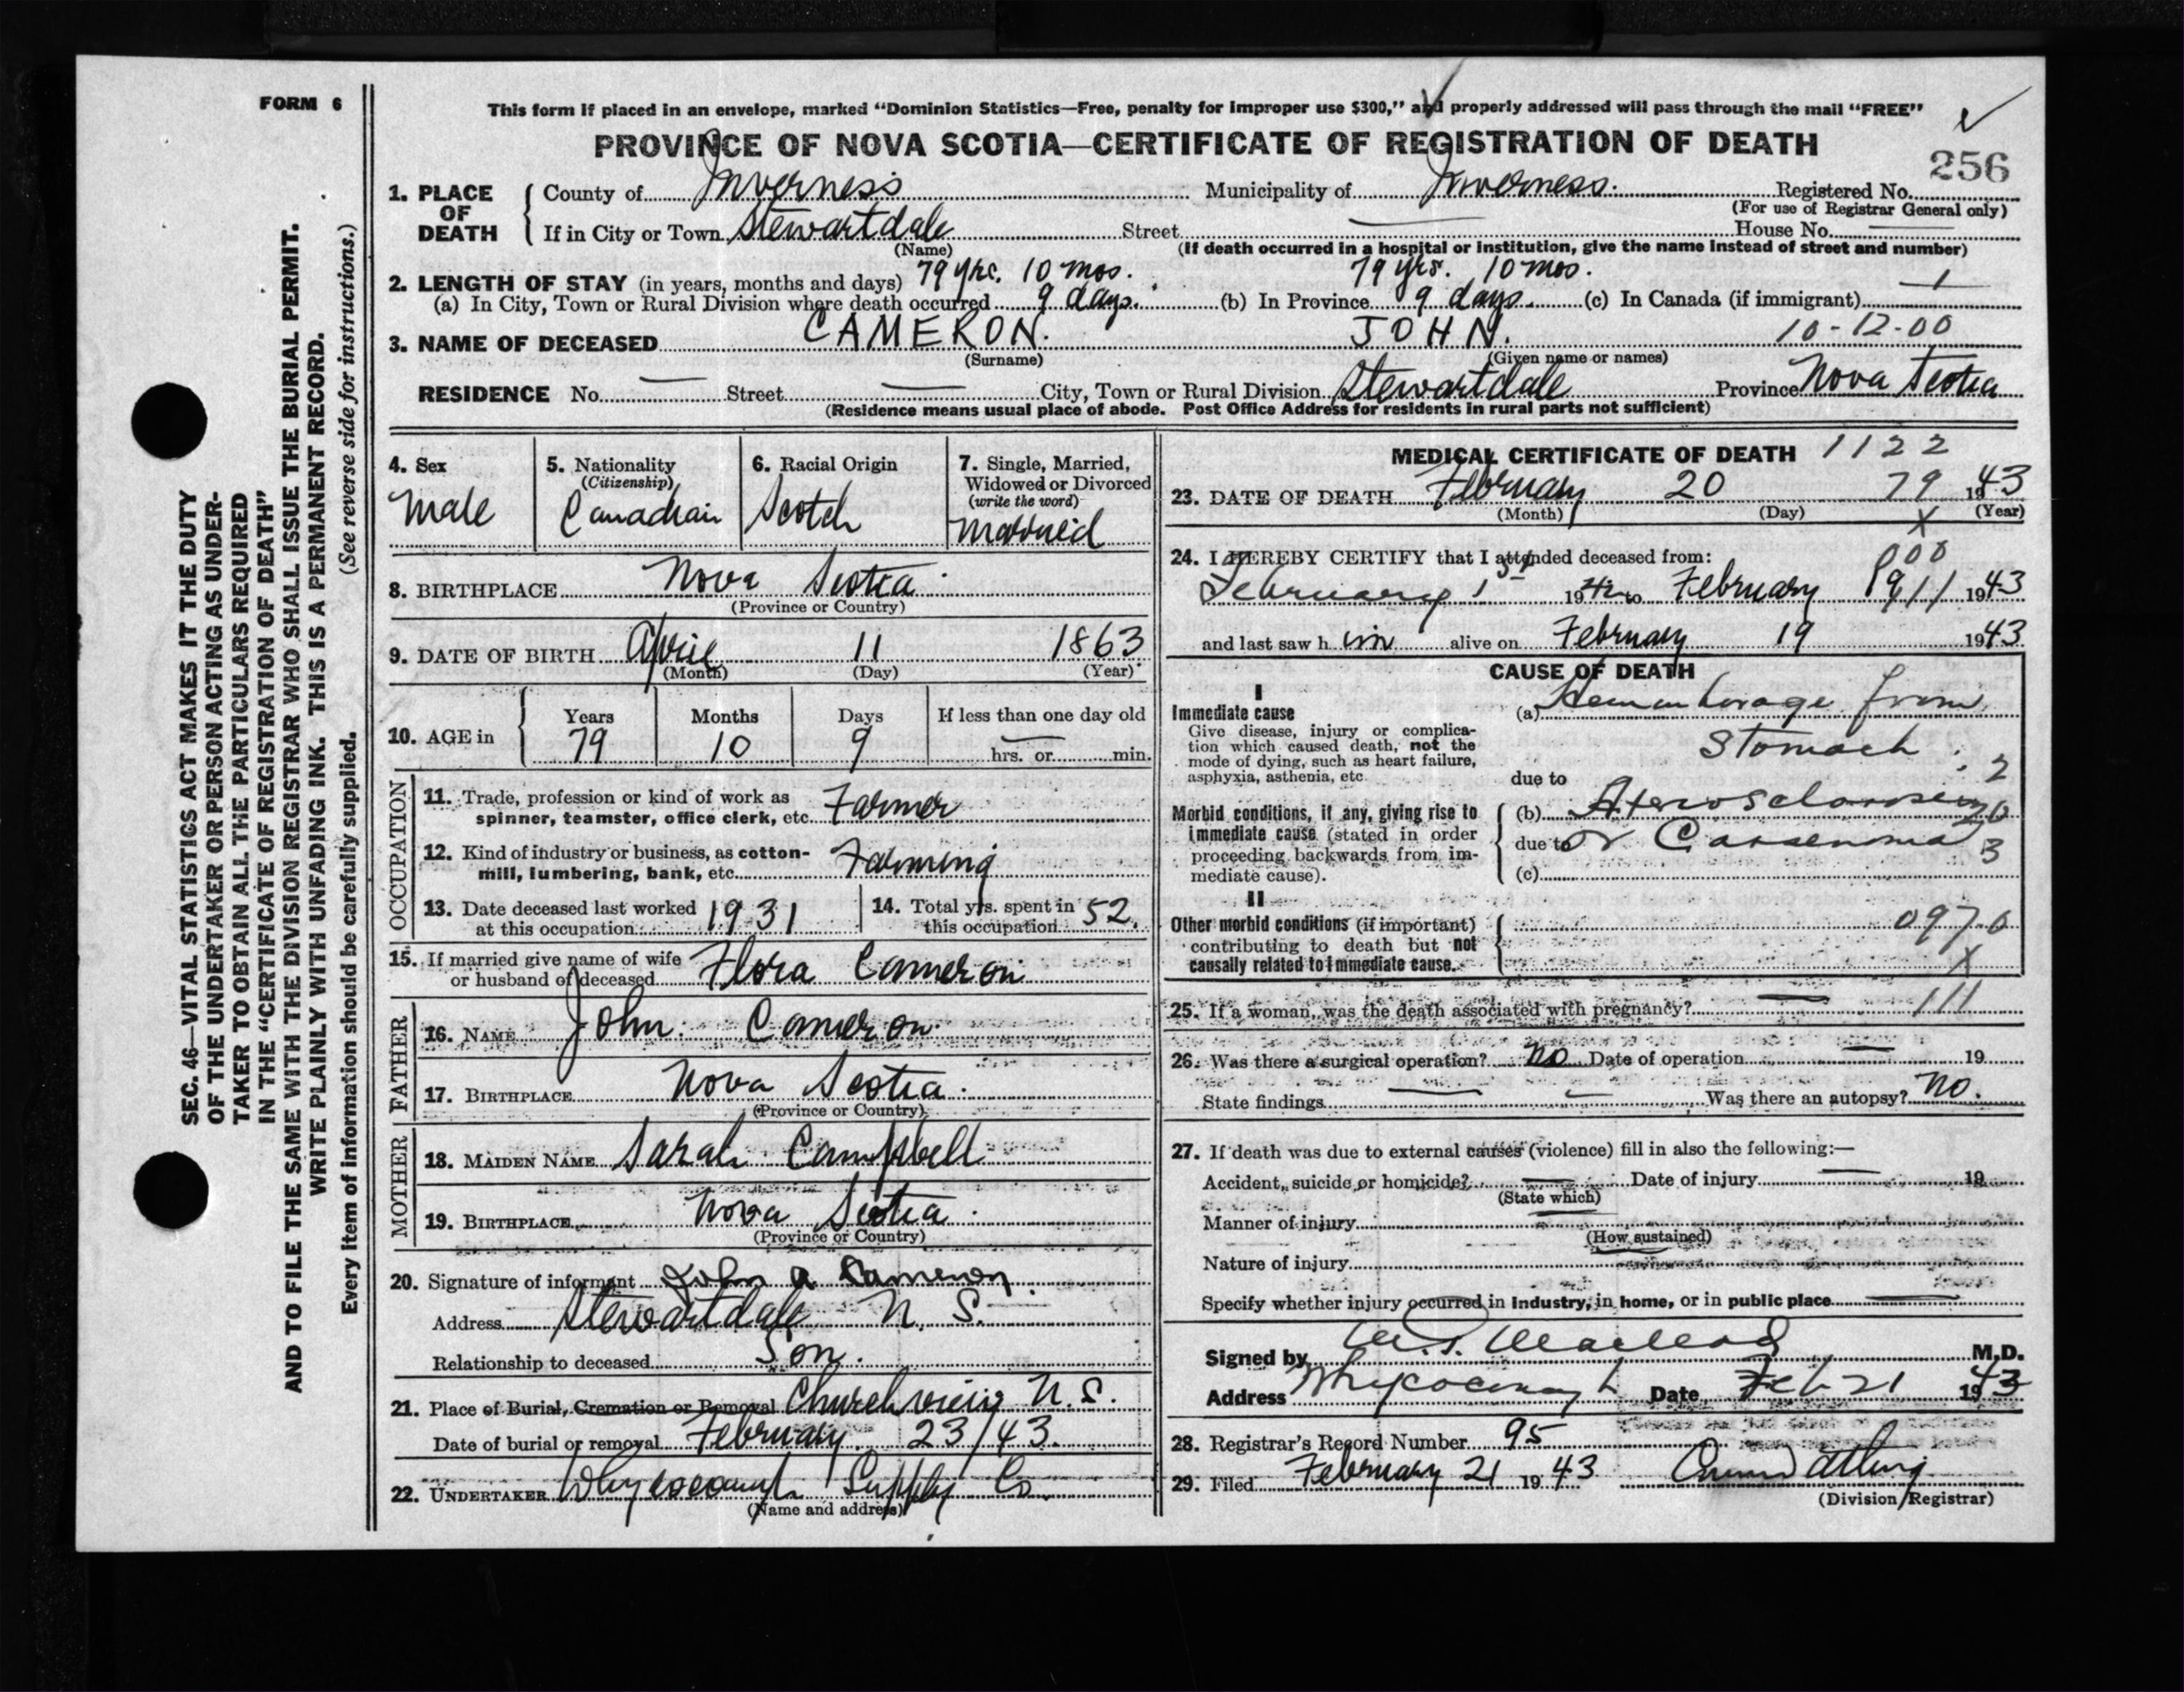 FORM 6
This form if placed in an envelope, marked “Dominion Statistics—Free, penalty for improper use $300,” and properly addressed will pass through the mail “FREE”
PROVINCE OF NOVA SCOTIA—CERTIFICATE OF REGISTRATION OF DEATH
256
1. PLACE OF DEATH
County of Inverness Municipality of Inverness. Registered No.
(For use of Registrar General only)
If in City or Town Stewartdale Street — House No. —
(Name) (If death occurred in a hospital or institution, give the name instead of street and number)
2. LENGTH OF STAY (in years, months and days) 79 yrs. 10 mos. 79 yrs. 10 mos.
(a) In City, Town or Rural Division where death occurred 9 days. (b) In Province 9 days. (c) In Canada (if immigrant)
3. NAME OF DECEASED CAMERON. JOHN. 10-12-00
(Surname) (Given name or names)
RESIDENCE No. — Street — City, Town or Rural Division Stewartdale Province Nova Scotia
(Residence means usual place of abode. Post Office Address for residents in rural parts not sufficient)
4. Sex
Male
5. Nationality
(Citizenship)
Canadian
6. Racial Origin
Scotch
7. Single, Married,
Widowed or Divorced
(write the word)
Married
8. BIRTHPLACE Nova Scotia.
(Province or Country)
9. DATE OF BIRTH April 11 1863
(Month) (Day) (Year)
10. AGE in Years Months Days If less than one day old
79 10 9 hrs. or min.
OCCUPATION
11. Trade, profession or kind of work as
spinner, teamster, office clerk, etc. Farmer
12. Kind of industry or business, as cotton-
mill, lumbering, bank, etc. Farming
13. Date deceased last worked
at this occupation 1931
14. Total yrs. spent in
this occupation 52.
15. If married give name of wife
or husband of deceased Flora Cameron
FATHER
16. NAME John. Cameron
17. BIRTHPLACE Nova Scotia.
(Province or Country)
MOTHER
18. MAIDEN NAME Sarah Campbell
19. BIRTHPLACE Nova Scotia.
(Province or Country)
20. Signature of informant John A Cameron
Address Stewartdale N. S.
Relationship to deceased Son.
21. Place of Burial, Cremation or Removal Churchview N. S.
Date of burial or removal February 23/43.
22. UNDERTAKER Whycocomagh Supply Co.
(Name and address)
MEDICAL CERTIFICATE OF DEATH 1122
23. DATE OF DEATH February 20 79 1943
(Month) (Day) (Year)
X
24. I HEREBY CERTIFY that I attended deceased from: 000
February 1st 19 to February 1943
and last saw h im alive on February 19 1943
CAUSE OF DEATH
I
Immediate cause
Give disease, injury or complica-
tion which caused death, not the
mode of dying, such as heart failure,
asphyxia, asthenia, etc.
(a) Hemmhorage from
Stomach. 2
due to
Morbid conditions, if any, giving rise to
immediate cause (stated in order
proceeding backwards from im-
mediate cause).
(b)
due to or 3
(c)
II
Other morbid conditions (if important)
contributing to death but not
causally related to immediate cause.
097.0
X
25. If a woman, was the death associated with pregnancy? — 111
26. Was there a surgical operation? No Date of operation — 19
State findings — Was there an autopsy? No.
27. If death was due to external causes (violence) fill in also the following:—
Accident, suicide or homicide? — Date of injury — 19
(State which)
Manner of injury
(How sustained)
Nature of injury
Specify whether injury occurred in industry, in home, or in public place —
Signed by MacLeod M.D.
Address Whycocomagh Date Feb 21 1943
28. Registrar's Record Number 95
29. Filed February 21 1943
(Division Registrar)
SEC. 46—VITAL STATISTICS ACT MAKES IT THE DUTY
OF THE UNDERTAKER OR PERSON ACTING AS UNDER-
TAKER TO OBTAIN ALL THE PARTICULARS REQUIRED
IN THE “CERTIFICATE OF REGISTRATION OF DEATH”
AND TO FILE THE SAME WITH THE DIVISION REGISTRAR WHO SHALL ISSUE THE BURIAL PERMIT.
WRITE PLAINLY WITH UNFADING INK. THIS IS A PERMANENT RECORD.
Every item of information should be carefully supplied. (See reverse side for instructions.)